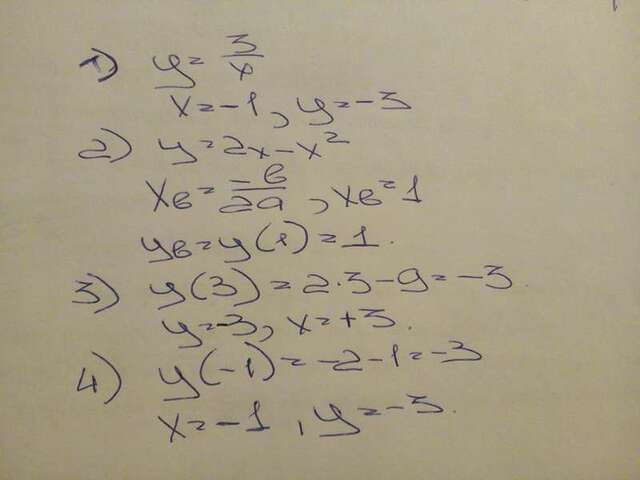 1) y = 3/x
x = -1, y = -3
2) y = 2x - x²
xв = -в/2a, xв = 1
yв = y(1) = 1.
3) y(3) = 2·3 - 9 = -3.
y = -3, x = +3.
4) y(-1) = -2 - 1 = -3
x = -1, y = -3.